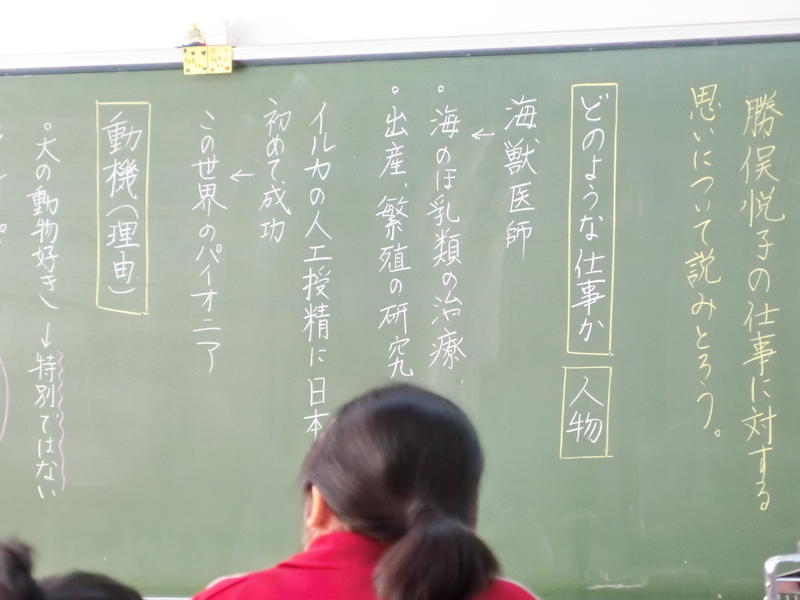 勝俣悦子の仕事に対する
思いについて読みとろう。
どのような仕事か
人物
海獣医師
←
。海のほ乳類の治療
。出産、繁殖の研究
イルカの人工授精に日本
初めて成功
←
この世界のパイオニア
動機(理由)
。犬の動物好き→特別ではない